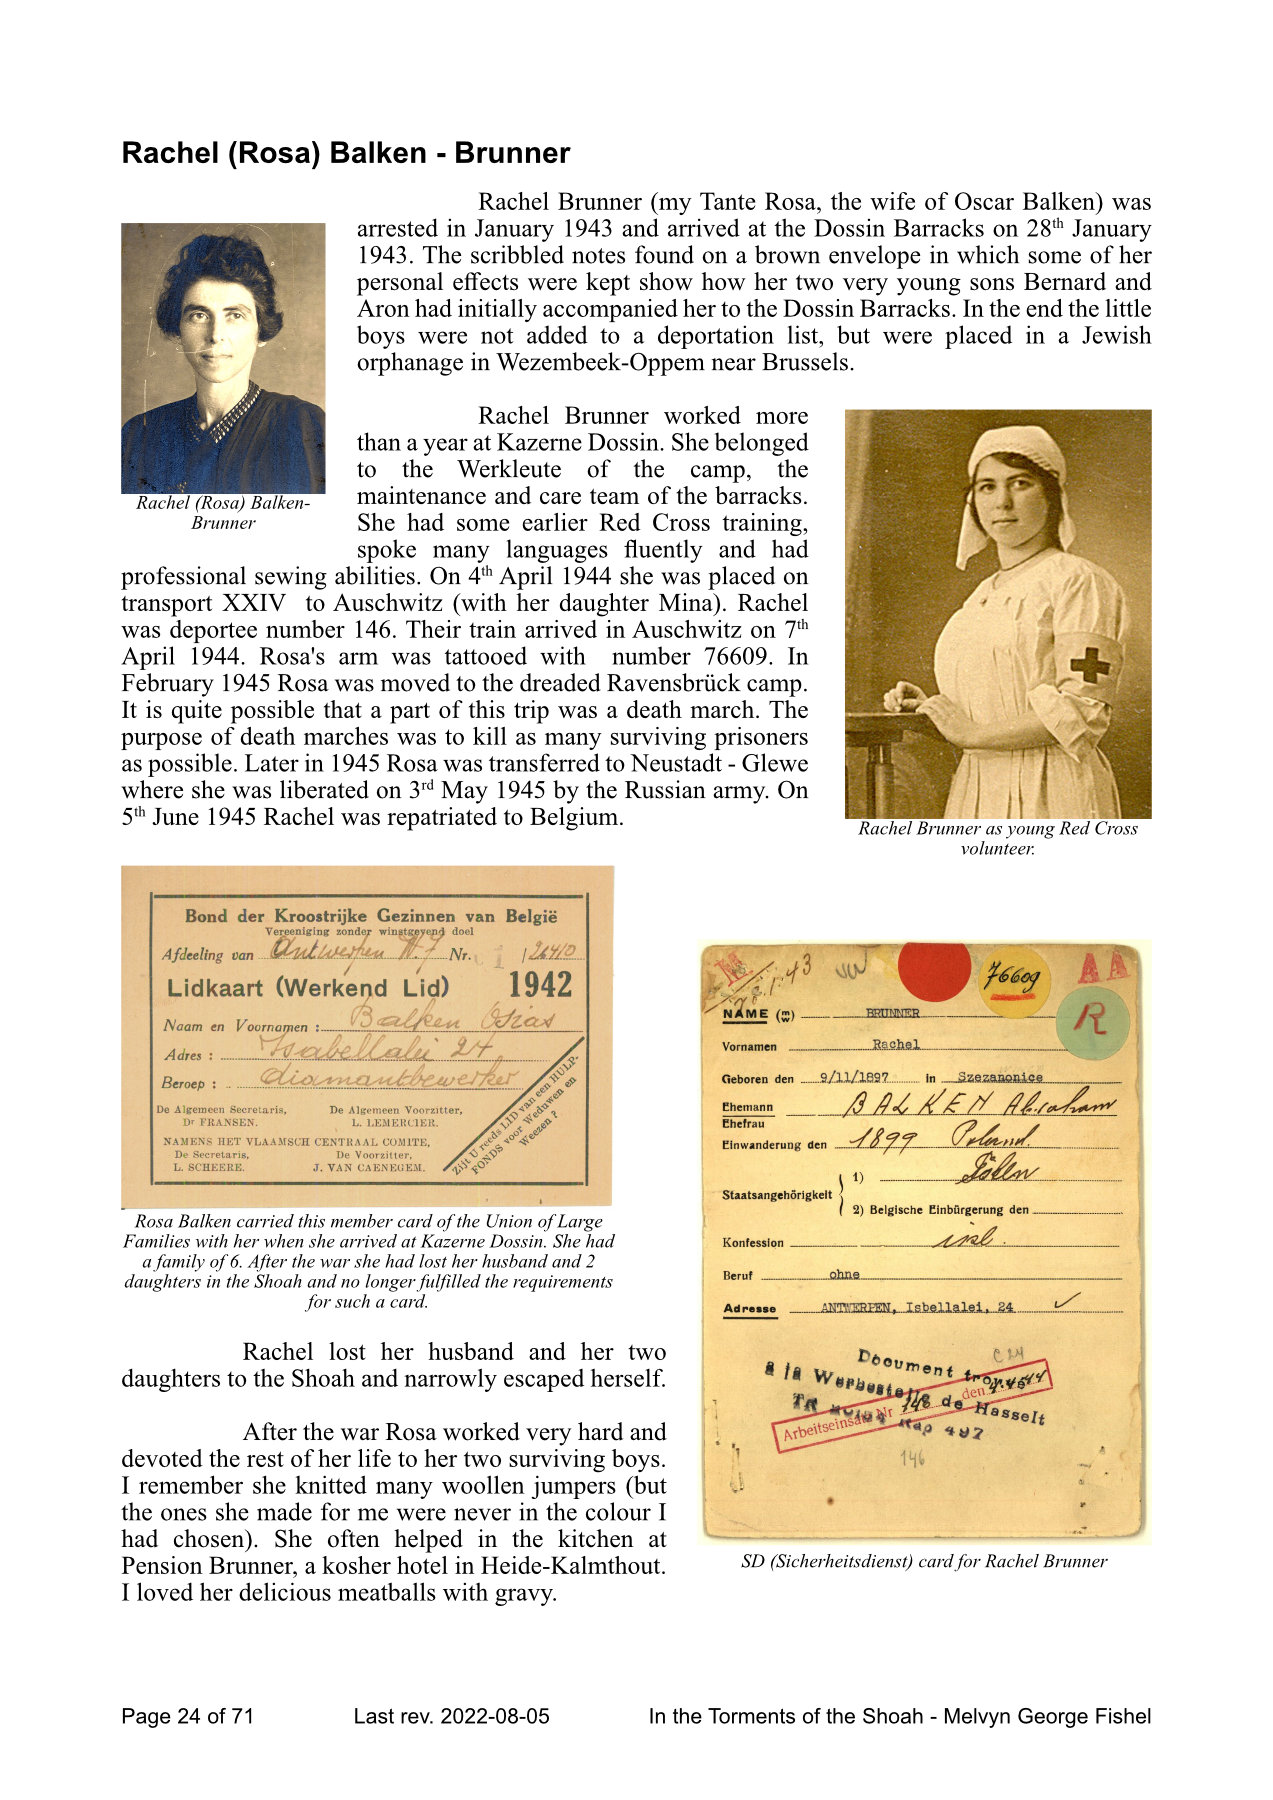 Rachel (Rosa) Balken - Brunner
Rachel Brunner (my Tante Rosa, the wife of Oscar Balken) was
arrested in January 1943 and arrived at the Dossin Barracks on 28th January
1943. The scribbled notes found on a brown envelope in which some of her
personal effects were kept show how her two very young sons Bernard and
Aron had initially accompanied her to the Dossin Barracks. In the end the little
boys were not added to a deportation list, but were placed in a Jewish
orphanage in Wezembeek-Oppem near Brussels.
Rachel (Rosa) Balken-
Brunner
Rachel Brunner worked more
than a year at Kazerne Dossin. She belonged
to the Werkleute of the camp, the
maintenance and care team of the barracks.
She had some earlier Red Cross training,
spoke many languages fluently and had
professional sewing abilities. On 4th April 1944 she was placed on
transport XXIV to Auschwitz (with her daughter Mina). Rachel
was deportee number 146. Their train arrived in Auschwitz on 7th
April 1944. Rosa's arm was tattooed with number 76609. In
February 1945 Rosa was moved to the dreaded Ravensbrück camp.
It is quite possible that a part of this trip was a death march. The
purpose of death marches was to kill as many surviving prisoners
as possible. Later in 1945 Rosa was transferred to Neustadt - Glewe
where she was liberated on 3rd May 1945 by the Russian army. On
5th June 1945 Rachel was repatriated to Belgium.
Rachel Brunner as young Red Cross
volunteer.
Bond der Kroostrijke Gezinnen van België
Vereeniging zonder winstgevend doel
Afdeeling van Antwerpen N. 7 Nr. 1 / 26410
Lidkaart (Werkend Lid) 1942
Naam en Voornamen : Balken Osias
Adres : Isabellalei 24
Beroep : diamantbewerker
De Algemeen Secretaris, De Algemeen Voorzitter,
Dr FRANSEN. L. LEMERCIER.
NAMENS HET VLAAMSCH CENTRAAL COMITE,
De Secretaris, De Voorzitter,
L. SCHEERE. J. VAN CAENEGEM.
Zijt U reeds LID van een HULP-
FONDS voor Weduwen en
Weezen ?
Rosa Balken carried this member card of the Union of Large
Families with her when she arrived at Kazerne Dossin. She had
a family of 6. After the war she had lost her husband and 2
daughters in the Shoah and no longer fulfilled the requirements
for such a card.
76609
AA
R
NAME (m/w) BRUNNER
Vornamen Rachel
Geboren den 9/11/1897 in Szezanonice
Ehemann BALKEN Abraham
Ehefrau
Einwanderung den 1899 Poland.
Staatsangehörigkeit 1) Polen
2) Belgische Einbürgerung den
Konfession isl.
Beruf ohne
Adresse ANTWERPEN, Isbellalei, 24
C 24
Document trouvé
à la Werbestelle de Hasselt
Rap 497
Arbeitseinsatz Nr 146 den 4.4.44
146
SD (Sicherheitsdienst) card for Rachel Brunner
Rachel lost her husband and her two
daughters to the Shoah and narrowly escaped herself.
After the war Rosa worked very hard and
devoted the rest of her life to her two surviving boys.
I remember she knitted many woollen jumpers (but
the ones she made for me were never in the colour I
had chosen). She often helped in the kitchen at
Pension Brunner, a kosher hotel in Heide-Kalmthout.
I loved her delicious meatballs with gravy.
Page 24 of 71 Last rev. 2022-08-05 In the Torments of the Shoah - Melvyn George Fishel